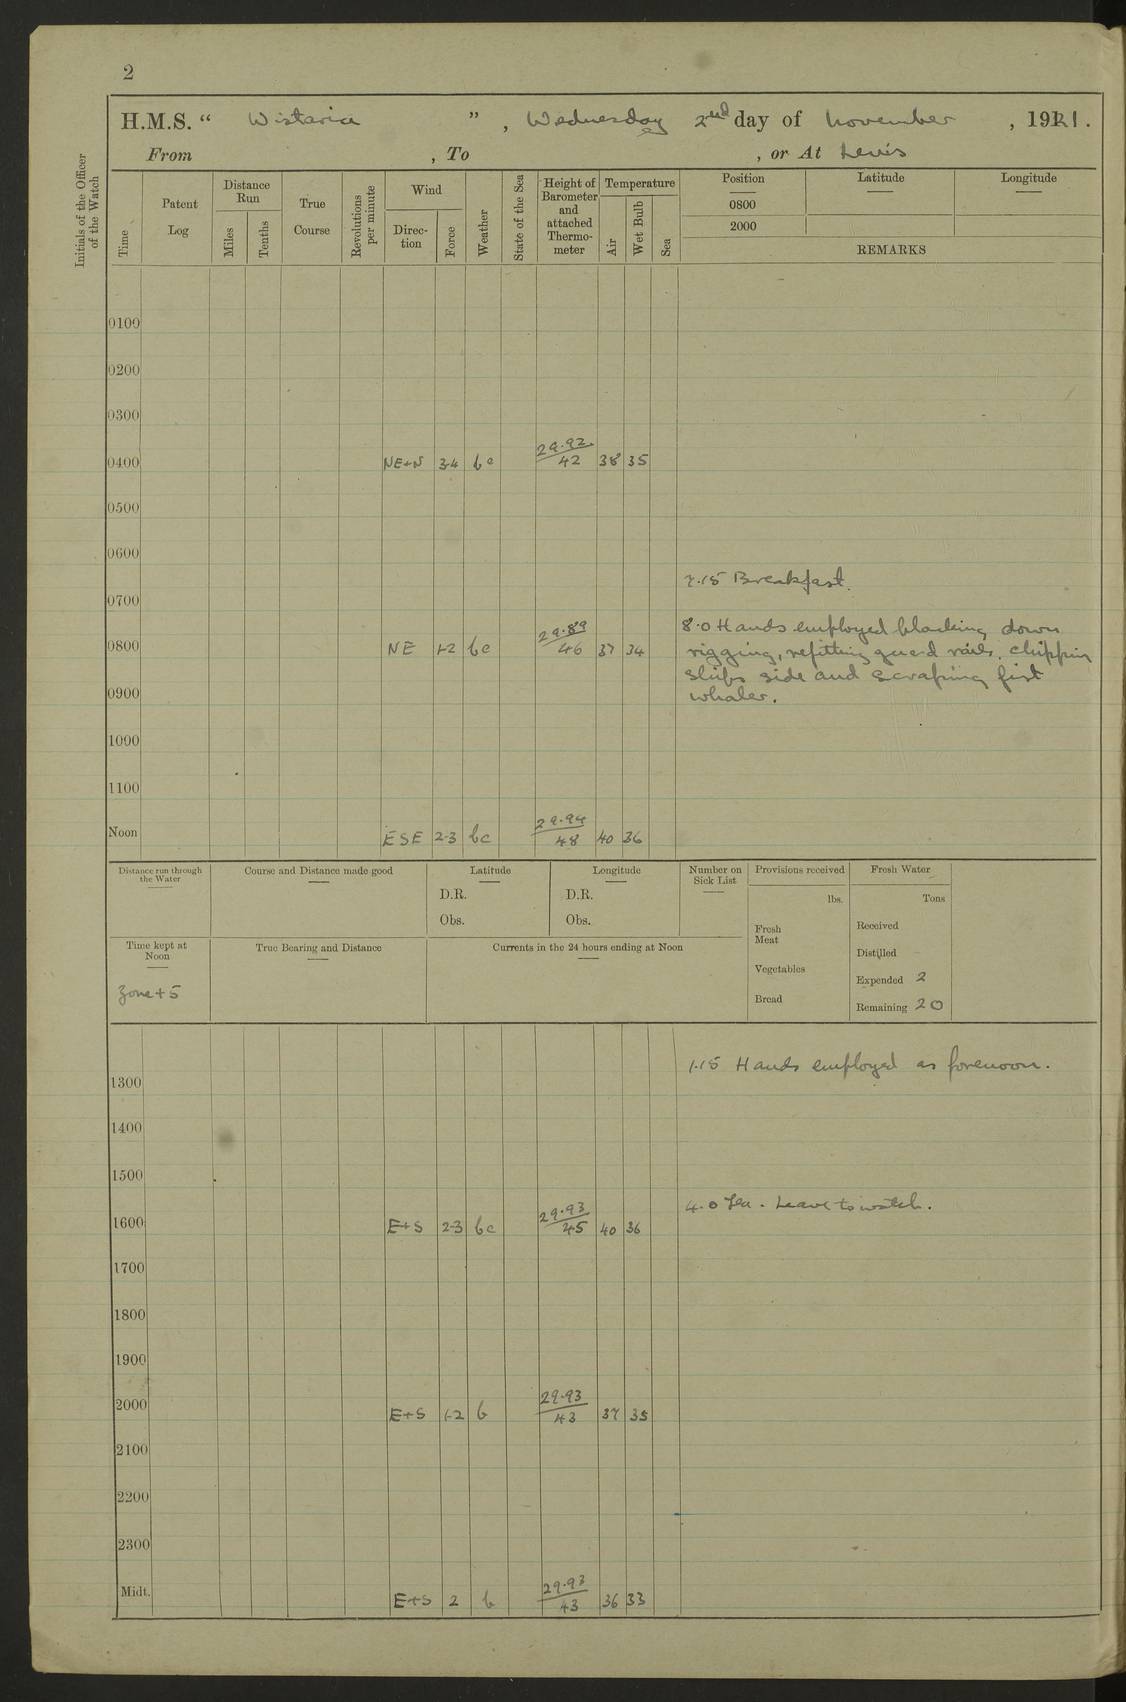 2
H.M.S. “ Wistaria ” , Wednesday 2nd day of November , 1921.
From , To , or At Levis
Initials of the Officer of the Watch
Time
Patent Log
Distance Run
Miles
Tenths
True Course
Revolutions per minute
Wind
Direc-tion
Force
Weather
State of the Sea
Height of Barometer and attached Thermo-meter
Temperature
Air
Wet Bulb
Sea
Position Latitude Longitude
0800
2000
REMARKS
0100
0200
0300
0400 NE+N 3-4 bc 29.92/42 38 35
0500
0600
7.15 Breakfast.
0700
8.0 Hands employed blacking down
0800 NE 1-2 bc 29.89/46 37 34 rigging, refitting guard rails, chipping
ships side and scraping first
0900
whaler.
1000
1100
Noon ESE 2-3 bc 29.94/48 40 36
Distance run through the Water
Course and Distance made good
Latitude
D.R.
Obs.
Longitude
D.R.
Obs.
Number on Sick List
Provisions received
lbs.
Fresh Meat
Vegetables
Bread
Fresh Water
Tons
Received
Distilled
Expended 2
Remaining 20
Time kept at Noon
Zone+5
True Bearing and Distance
Currents in the 24 hours ending at Noon
1.15 Hands employed as forenoon.
1300
1400
1500
4.0 Tea. Leave to watch.
1600 E+S 2-3 bc 29.93/45 40 36
1700
1800
1900
2000 E+S 1-2 b 29.93/43 37 35
2100
2200
2300
Midt. E+S 2 b 29.93/43 36 33